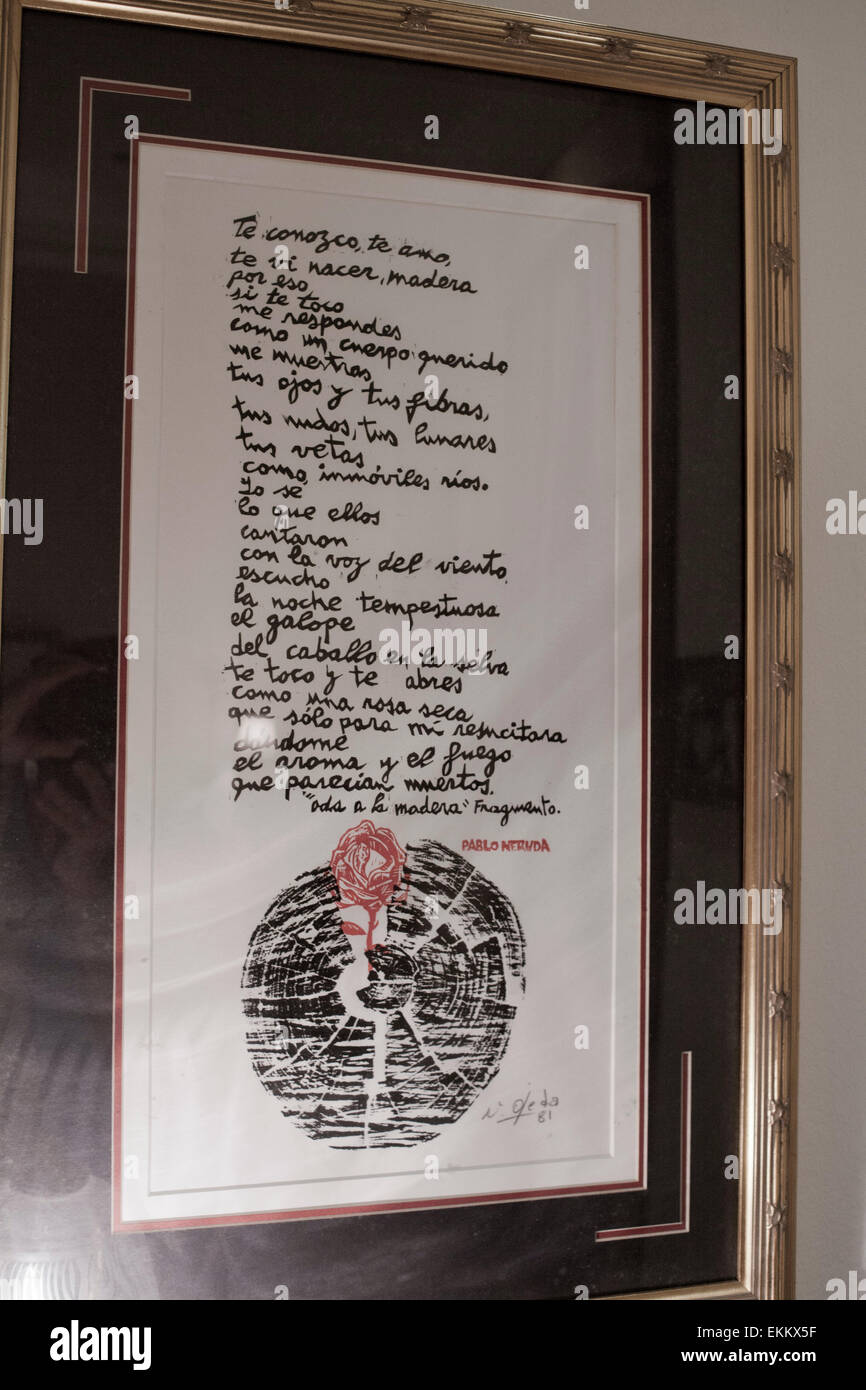 Te conozco, te amo,
te vi nacer, madera
por eso
si te toco
me respondes
como un cuerpo querido
me muestras
tus ojos y tus fibras,
tus nudos, tus lunares
tus vetas
como inmóviles ríos.
Yo sé
lo que ellos
cantaron
con la voz del viento,
escucho
la noche tempestuosa
el galope
del caballo en la selva
te toco y te abres
como una rosa seca
que sólo para mí resucitara
dándome
el aroma y el fuego
que parecían muertos.
"oda a la madera" Fragmento.
PABLO NERUDA
N. Ojeda
81
alamy
Image ID: EKKX5F
www.alamy.com